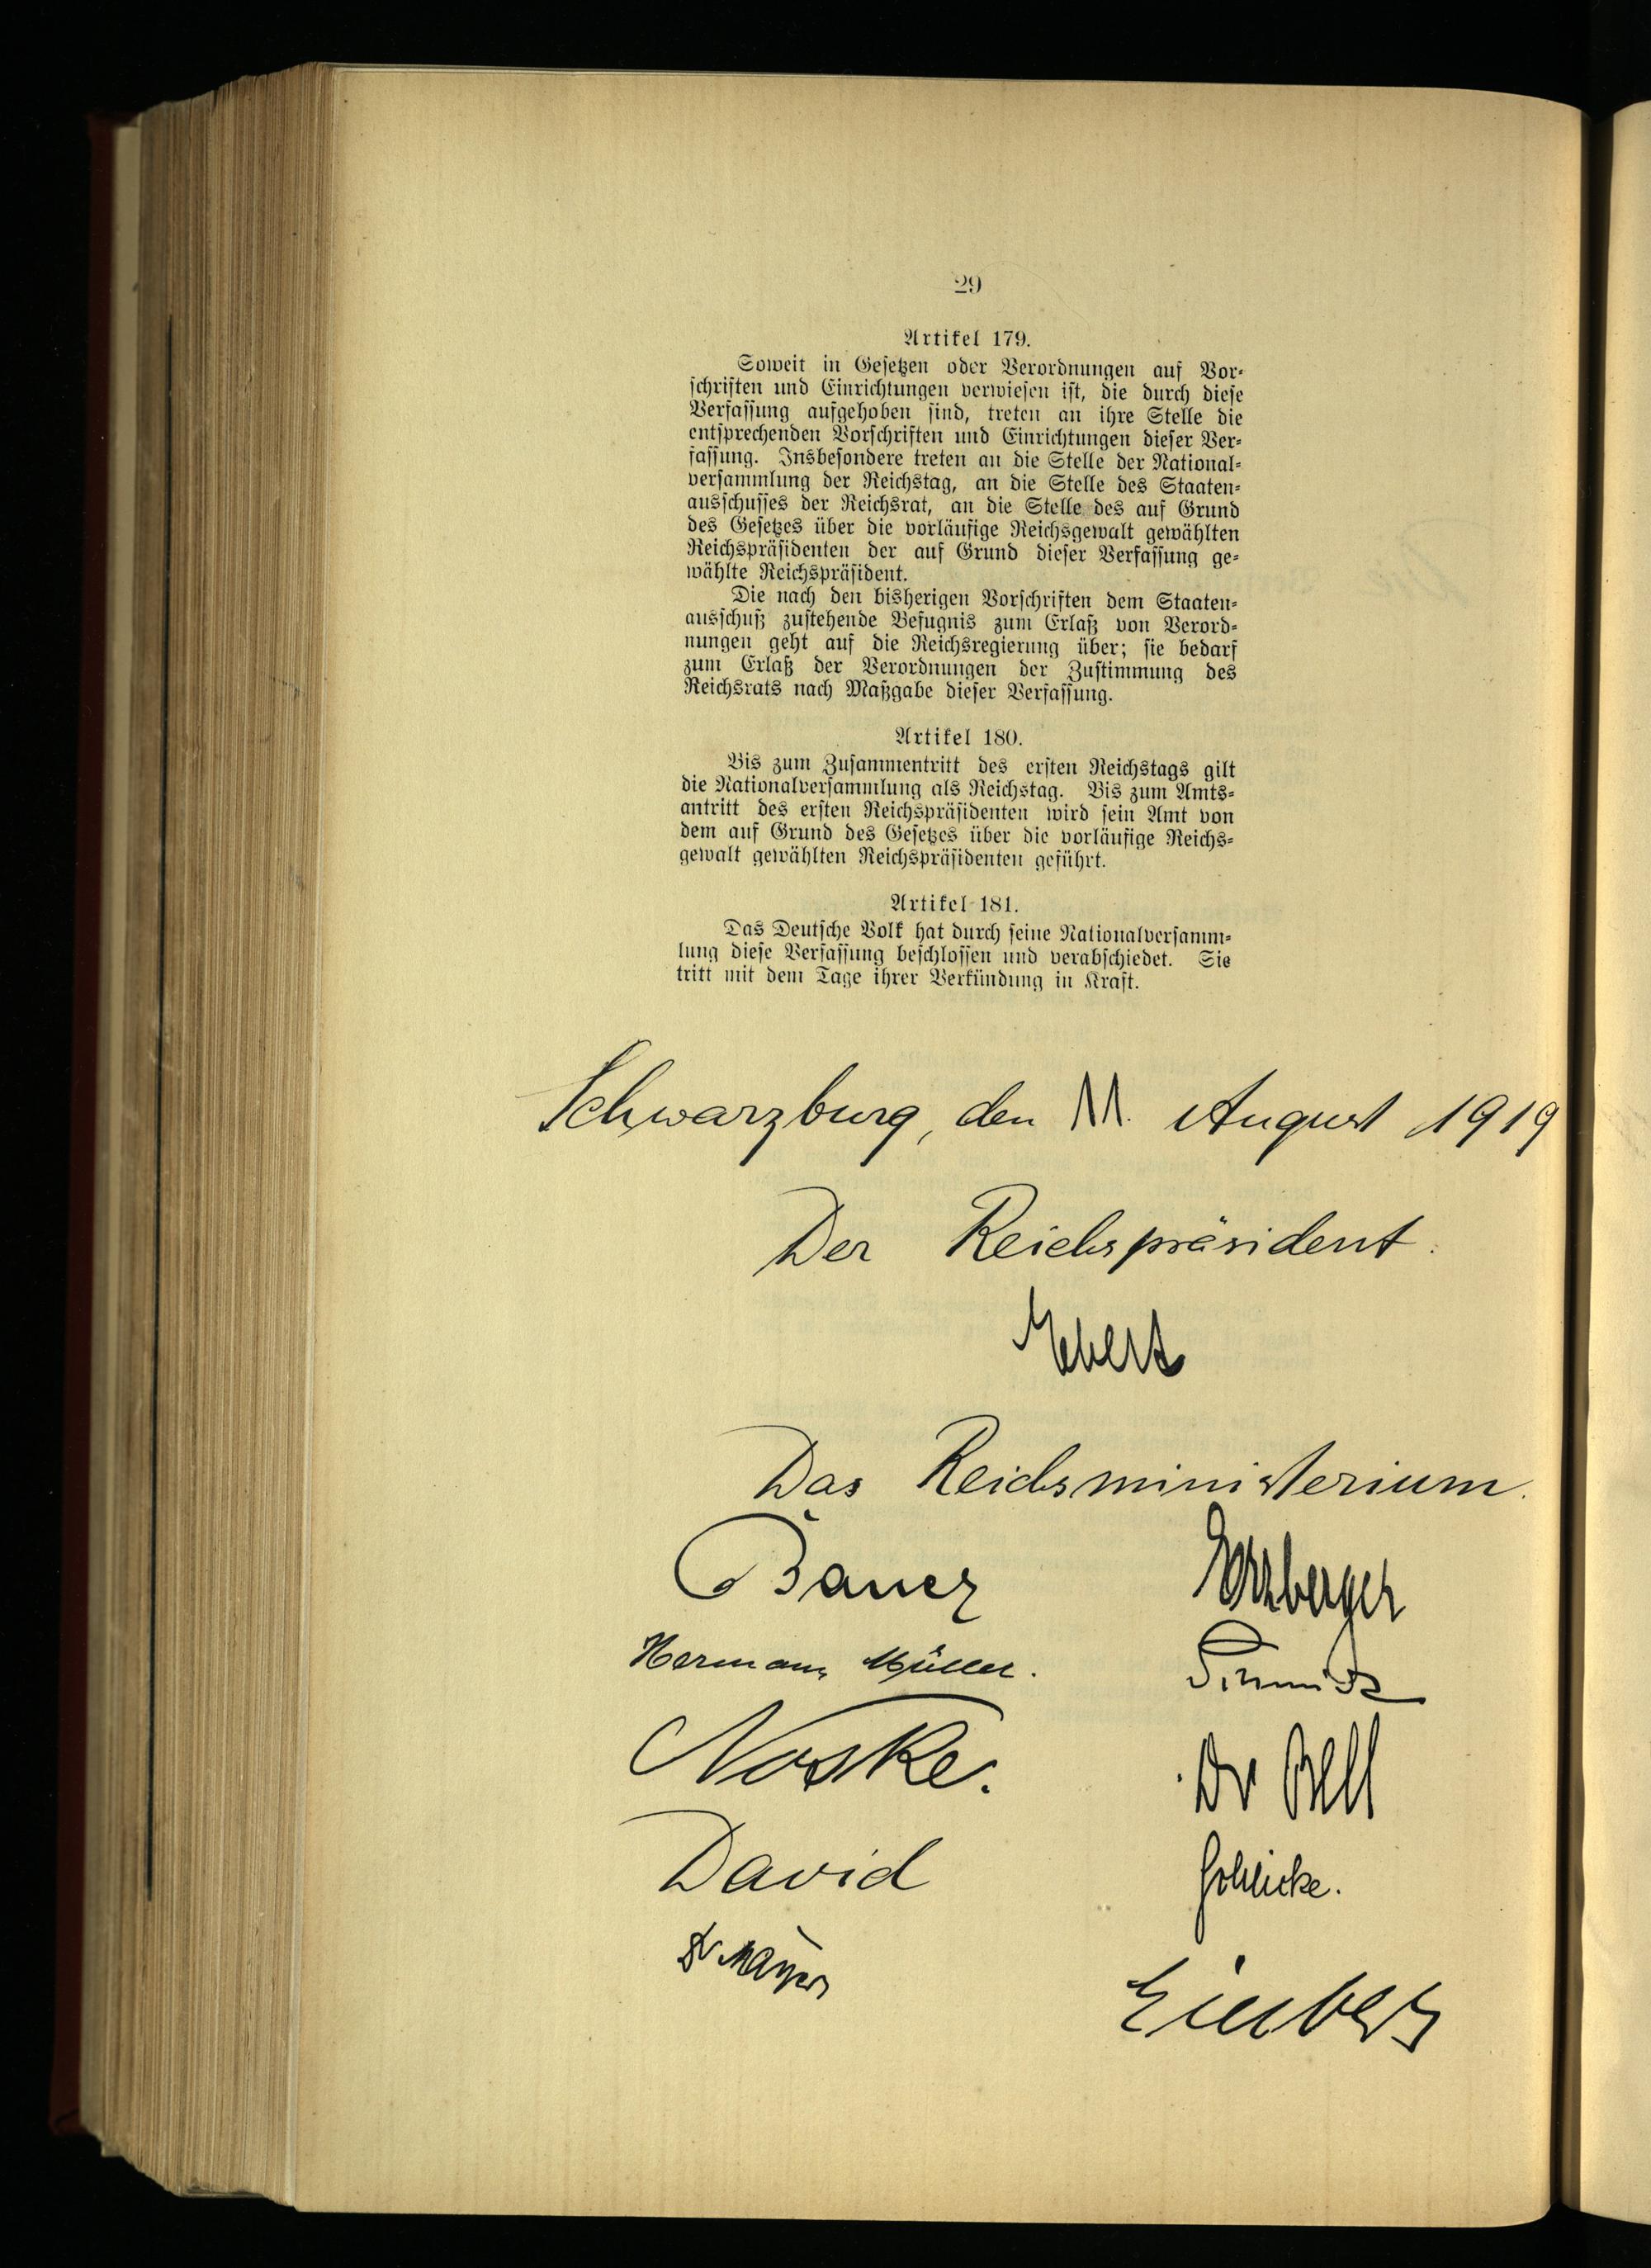 29
Artikel 179.
Soweit in Gesetzen oder Verordnungen auf Vor-
schriften und Einrichtungen verwiesen ist, die durch diese
Verfassung aufgehoben sind, treten an ihre Stelle die
entsprechenden Vorschriften und Einrichtungen dieser Ver-
fassung. Insbesondere treten an die Stelle der National-
versammlung der Reichstag, an die Stelle des Staaten-
ausschusses der Reichsrat, an die Stelle des auf Grund
des Gesetzes über die vorläufige Reichsgewalt gewählten
Reichspräsidenten der auf Grund dieser Verfassung ge-
wählte Reichspräsident.
Die nach den bisherigen Vorschriften dem Staaten-
ausschuß zustehende Befugnis zum Erlaß von Verord-
nungen geht auf die Reichsregierung über; sie bedarf
zum Erlaß der Verordnungen der Zustimmung des
Reichsrats nach Maßgabe dieser Verfassung.
Artikel 180.
Bis zum Zusammentritt des ersten Reichstags gilt
die Nationalversammlung als Reichstag. Bis zum Amts-
antritt des ersten Reichspräsidenten wird sein Amt von
dem auf Grund des Gesetzes über die vorläufige Reichs-
gewalt gewählten Reichspräsidenten geführt.
Artikel 181.
Das Deutsche Volk hat durch seine Nationalversamm-
lung diese Verfassung beschlossen und verabschiedet. Sie
tritt mit dem Tage ihrer Verkündung in Kraft.
Schwarzburg, den 11. August 1919
Der Reichspräsident.
Ebert
Das Reichsministerium.
Bauer
Erzberger
Hermann Müller.
Schmidt
Noske.
Dr Bell
David
Dr Mayer